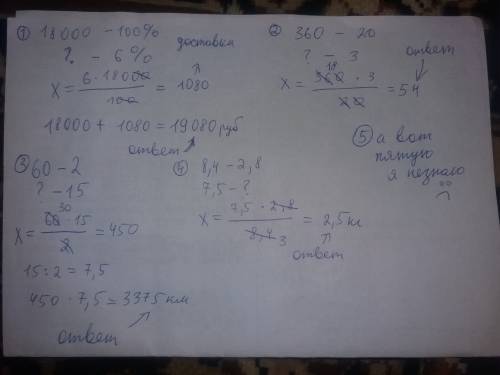 ① 18000 – 100%
? – 6%
доставка
x = 6 · 18000 / 100 = 1080
18000 + 1080 = 19080 руб
ответ
② 360 – 20
? – 3
ответ
18
x = 360 · 3 / 20 = 54
③ 60 – 2
? – 15
30
x = 60 · 15 / 2 = 450
15 : 2 = 7,5
450 · 7,5 = 3375 км
ответ
④ 8,4 – 2,8
7,5 – ?
x = 7,5 · 2,8 / 8,4 3 = 2,5 кг
ответ
⑤ а вот
пятую
я незнаю